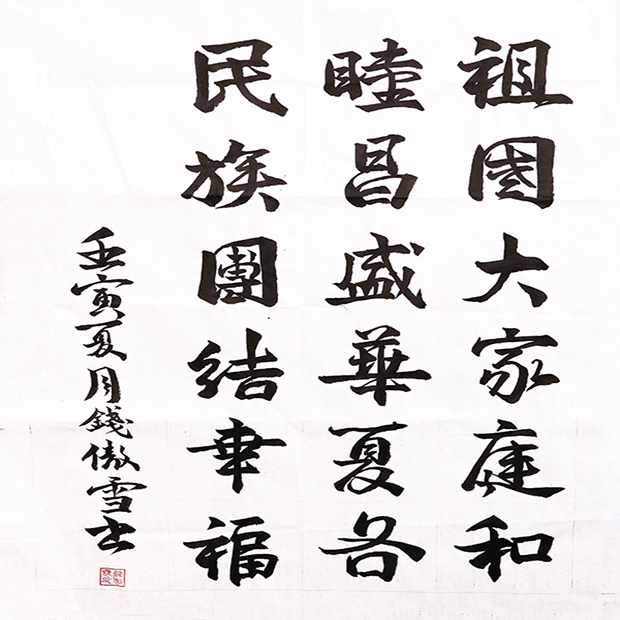 祖國大家庭和
睦昌盛華夏各
民族團結幸福
壬寅夏月錢傲雪書